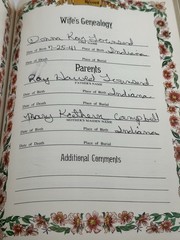 Wife's Genealogy
Donna Kay
Date of Birth 9-25-41 Place of Birth Indiana
Date of Death Place of Death
Parents
Roy Harold
FATHER'S NAME
Date of Birth Place of Birth Indiana
Date of Death Place of Death
Mary Kathern Campbell
MOTHER'S MAIDEN NAME
Date of Birth Place of Birth Indiana
Date of Death Place of Death
Additional Comments